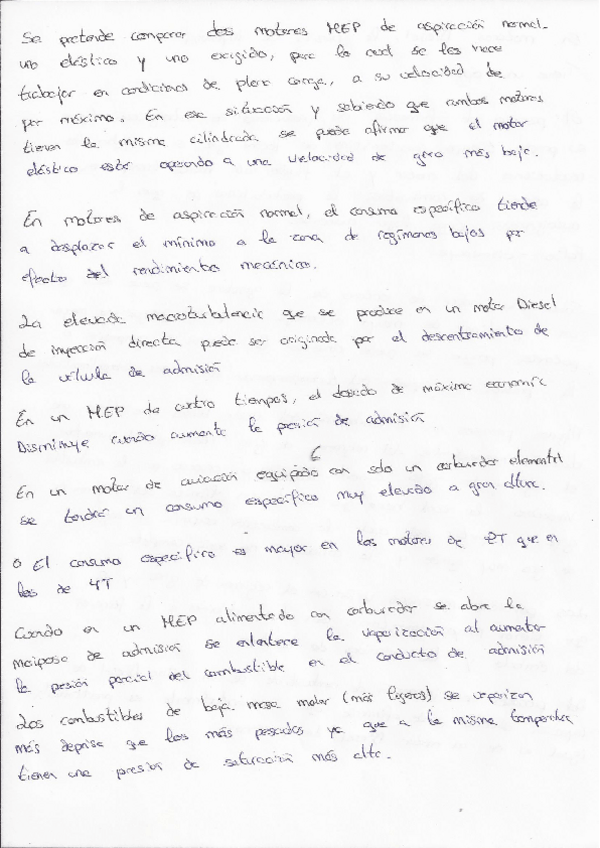 Se pretende comparar dos motores MEP de aspiración normal.
uno elástico y uno exigido, para lo cual se les hace
trabajar en condiciones de plena carga, a su velocidad de
par máximo. En esa situación y sabiendo que ambos motores
tienen la misma cilindrada se puede afirmar que el motor
elástico está operando a una velocidad de giro más baja.
En motores de aspiración normal, el consumo específico tiende
a desplazar el mínimo a la zona de regímenes bajos por
efecto del rendimiento mecánico.
La elevada macroturbulencia que se produce en un motor Diesel
de inyección directa puede ser originada por el descentramiento de
la válvula de admisión
En un MEP de cuatro tiempos, el dosado de máxima economía
Disminuye cuando aumenta la presión de admisión
6
En un motor de aviación equipado con solo un carburador elemental
se tendrá un consumo específico muy elevado a gran altura.
o El consumo específico es mayor en los motores de 2T que en
los de 4T
Cuando en un MEP alimentado con carburador se abre la
mariposa de admisión se enlentece la vaporización al aumentar
la presión parcial del combustible en el conducto de admisión
Los combustibles de baja masa molar (más ligeros) se vaporizan
más deprisa que los más pesados ya que a la misma temperatura
tienen una presión de saturación más alta.